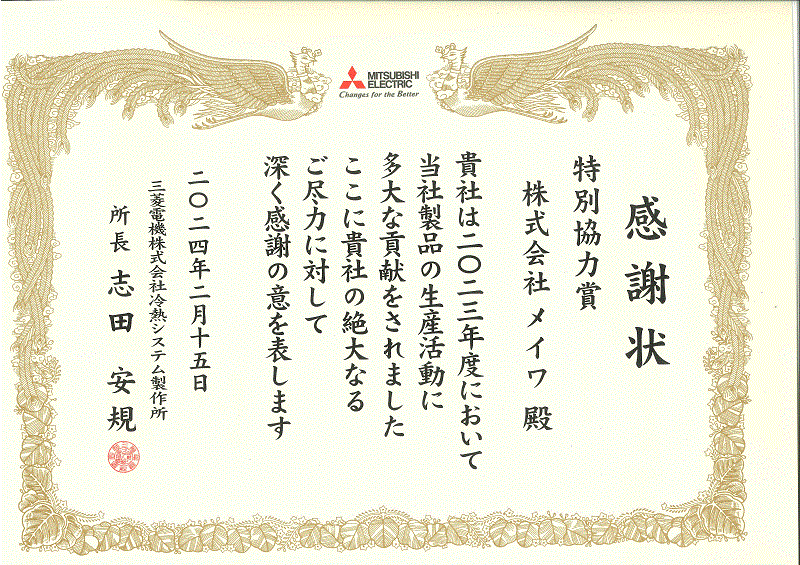 MITSUBISHI
ELECTRIC
Changes for the Better
感謝状
特別協力賞
株式会社 メイワ 殿
貴社は二〇二三年度において
当社製品の生産活動に
多大な貢献をされました
ここに貴社の絶大なる
ご尽力に対して
深く感謝の意を表します
二〇二四年二月十五日
三菱電機株式会社冷熱システム製作所
所長 志田 安規